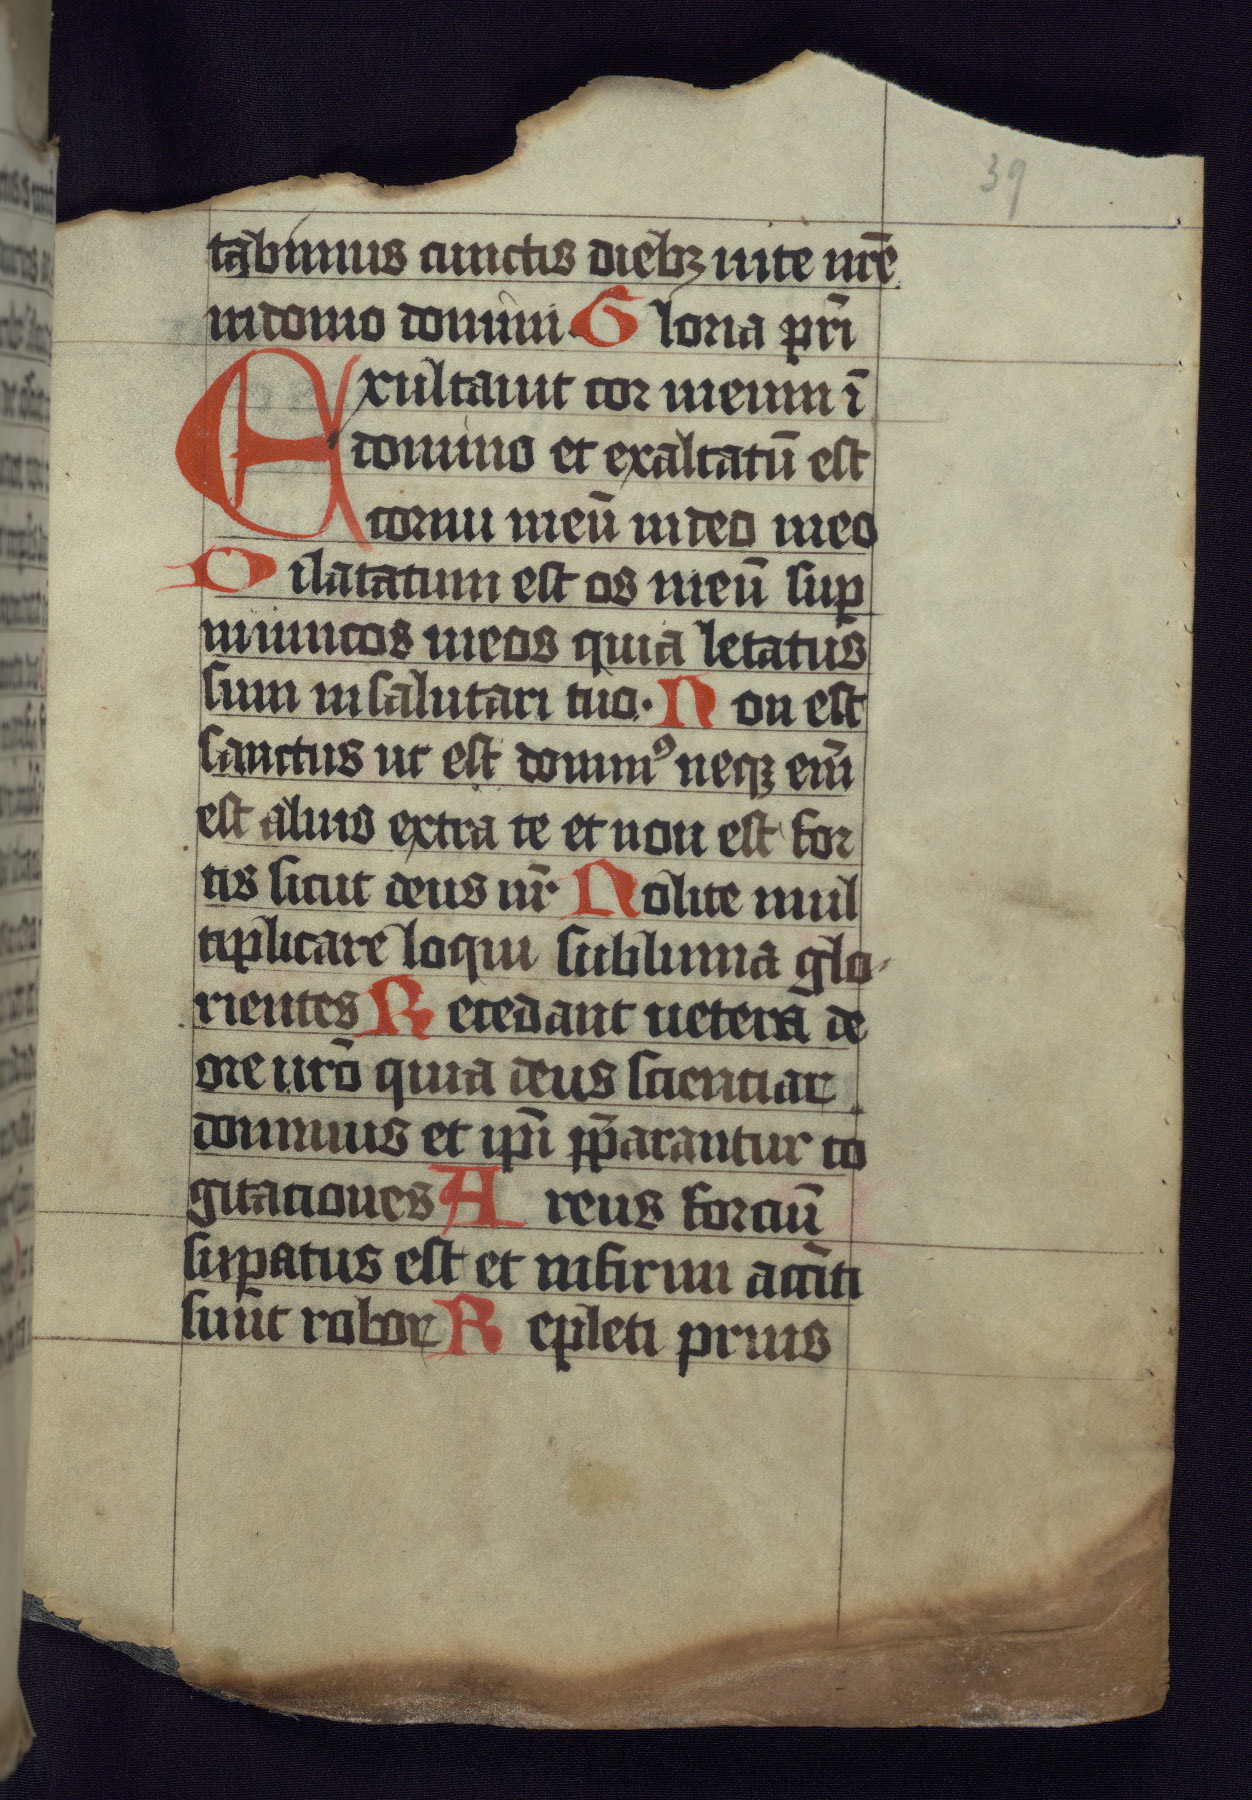 39
tabimus cunctis dieb⁊ uite nr̄e
in domo domini. Gloria pr̄i
Exultauit cor meum ī
domino et exaltatū est
cornu meū in deo meo
Dilatatum est os meū sup
inimicos meos quia letatus
sum in salutari tuo. Non est
sanctus ut est dominꝰ neqꝫ eni̅
est alius extra te et non est for
tis sicut deus nr̄ Nolite mul
tiplicare loqui sublimia glo-
rientes Recedant uetera de
ore ur̄o quia deus scientiar
dominus et ip̄i p̄parantur co
gitationes Arcus forciū
supatus est et infirmi acc̄iti
sunt robor Repleti prius